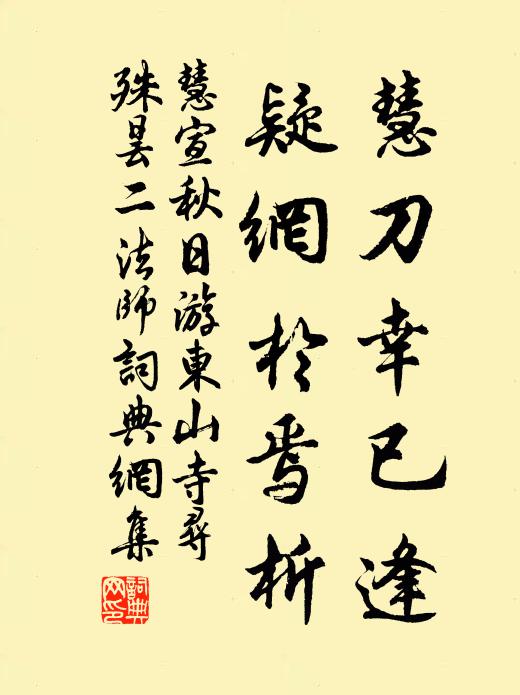 慧刀幸已逢
疑網於焉析
慧宣秋日游東山寺尋
殊曇二法師詞典網集
詞典網印